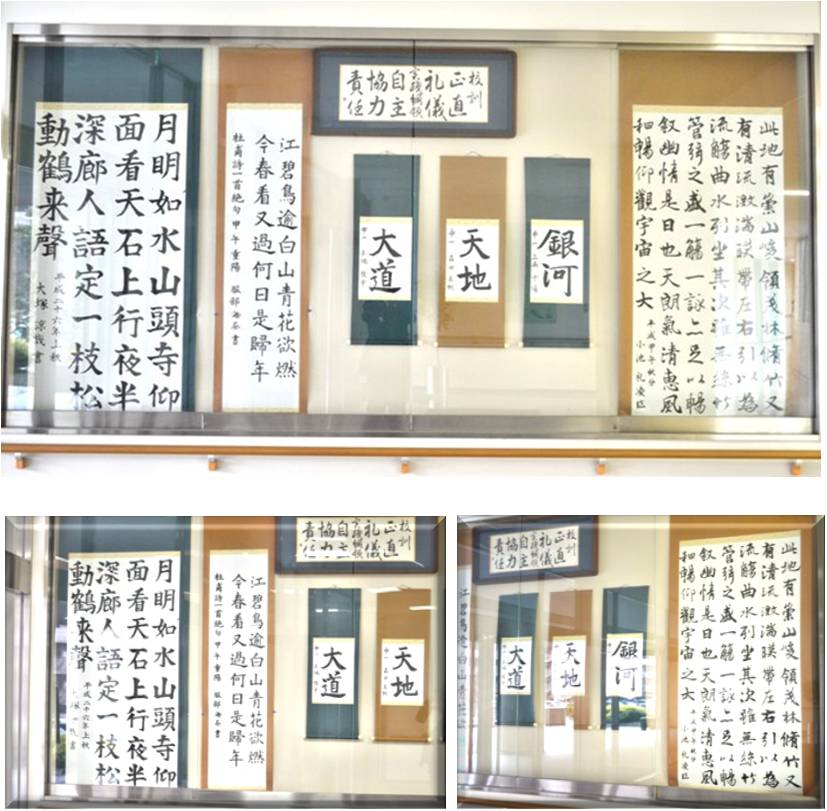 此地有崇山峻領茂林脩竹又
有清流激湍暎帶左右引以為
流觴曲水列坐其次雖無絲竹
管弦之盛一觴一詠亦足以暢
叙幽情是日也天朗氣清恵風
和暢仰觀宇宙之大
平成甲午秋分
小池礼凌臨
校訓
正直
礼儀
実践綱領
自主
協力
責任
銀河
天地
大道
江碧鳥逾白山青花欲燃
今春看又過何日是歸年
杜甫詩一首絶句 甲午重陽 服部 書
月明如水山頭寺仰
面看天石上行夜半
深廊人語定一枝松
動鶴来聲
平成二十六年上秋
大塚 書
校訓
正直
礼儀
実践綱領
自主
協力
責任
天地
大道
江碧鳥逾白山青花欲燃
今春看又過何日是歸年
杜甫詩一首絶句 甲午重陽 服部 書
月明如水山頭寺仰
面看天石上行夜半
深廊人語定一枝松
動鶴来聲
平成二十六年上秋
此地有崇山峻領茂林脩竹又
有清流激湍暎帶左右引以為
流觴曲水列坐其次雖無絲竹
管弦之盛一觴一詠亦足以暢
叙幽情是日也天朗氣清恵風
和暢仰觀宇宙之大
平成甲午秋分
小池礼凌臨
校訓
正直
礼儀
実践綱領
自主
協力
責任
銀河
天地
大道
江碧鳥逾白山青花